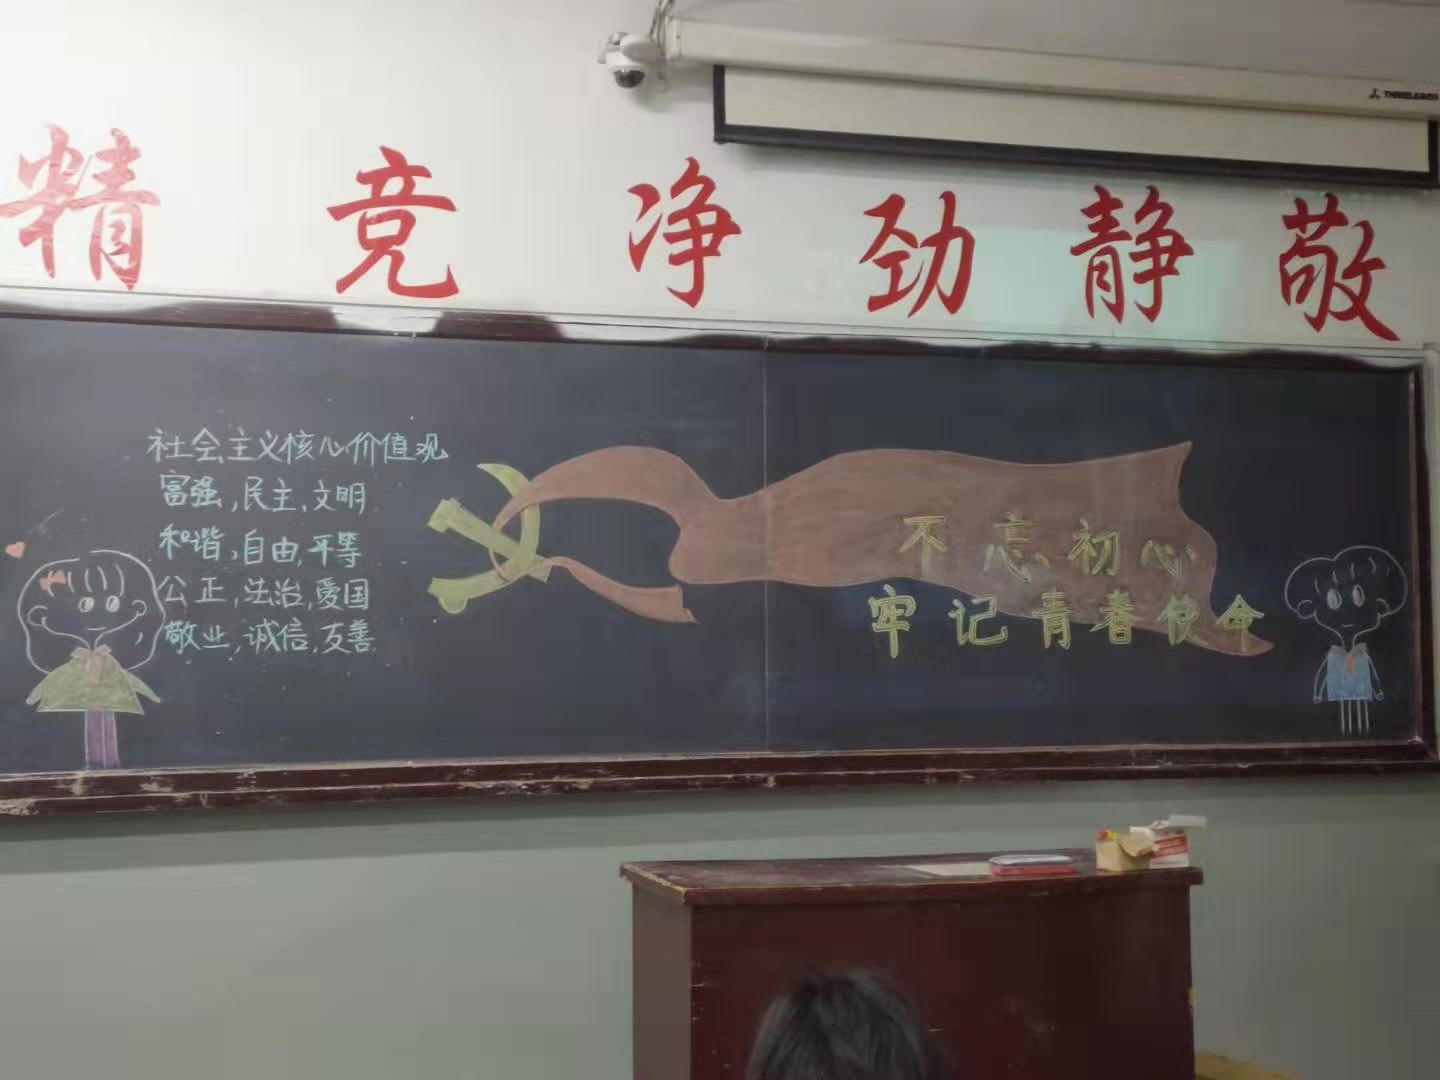 精 竞 净 劲 静 敬
社会主义核心价值观
富强,民主,文明
和谐,自由,平等
公正,法治,爱国
敬业,诚信,友善
不忘初心
牢记青春使命